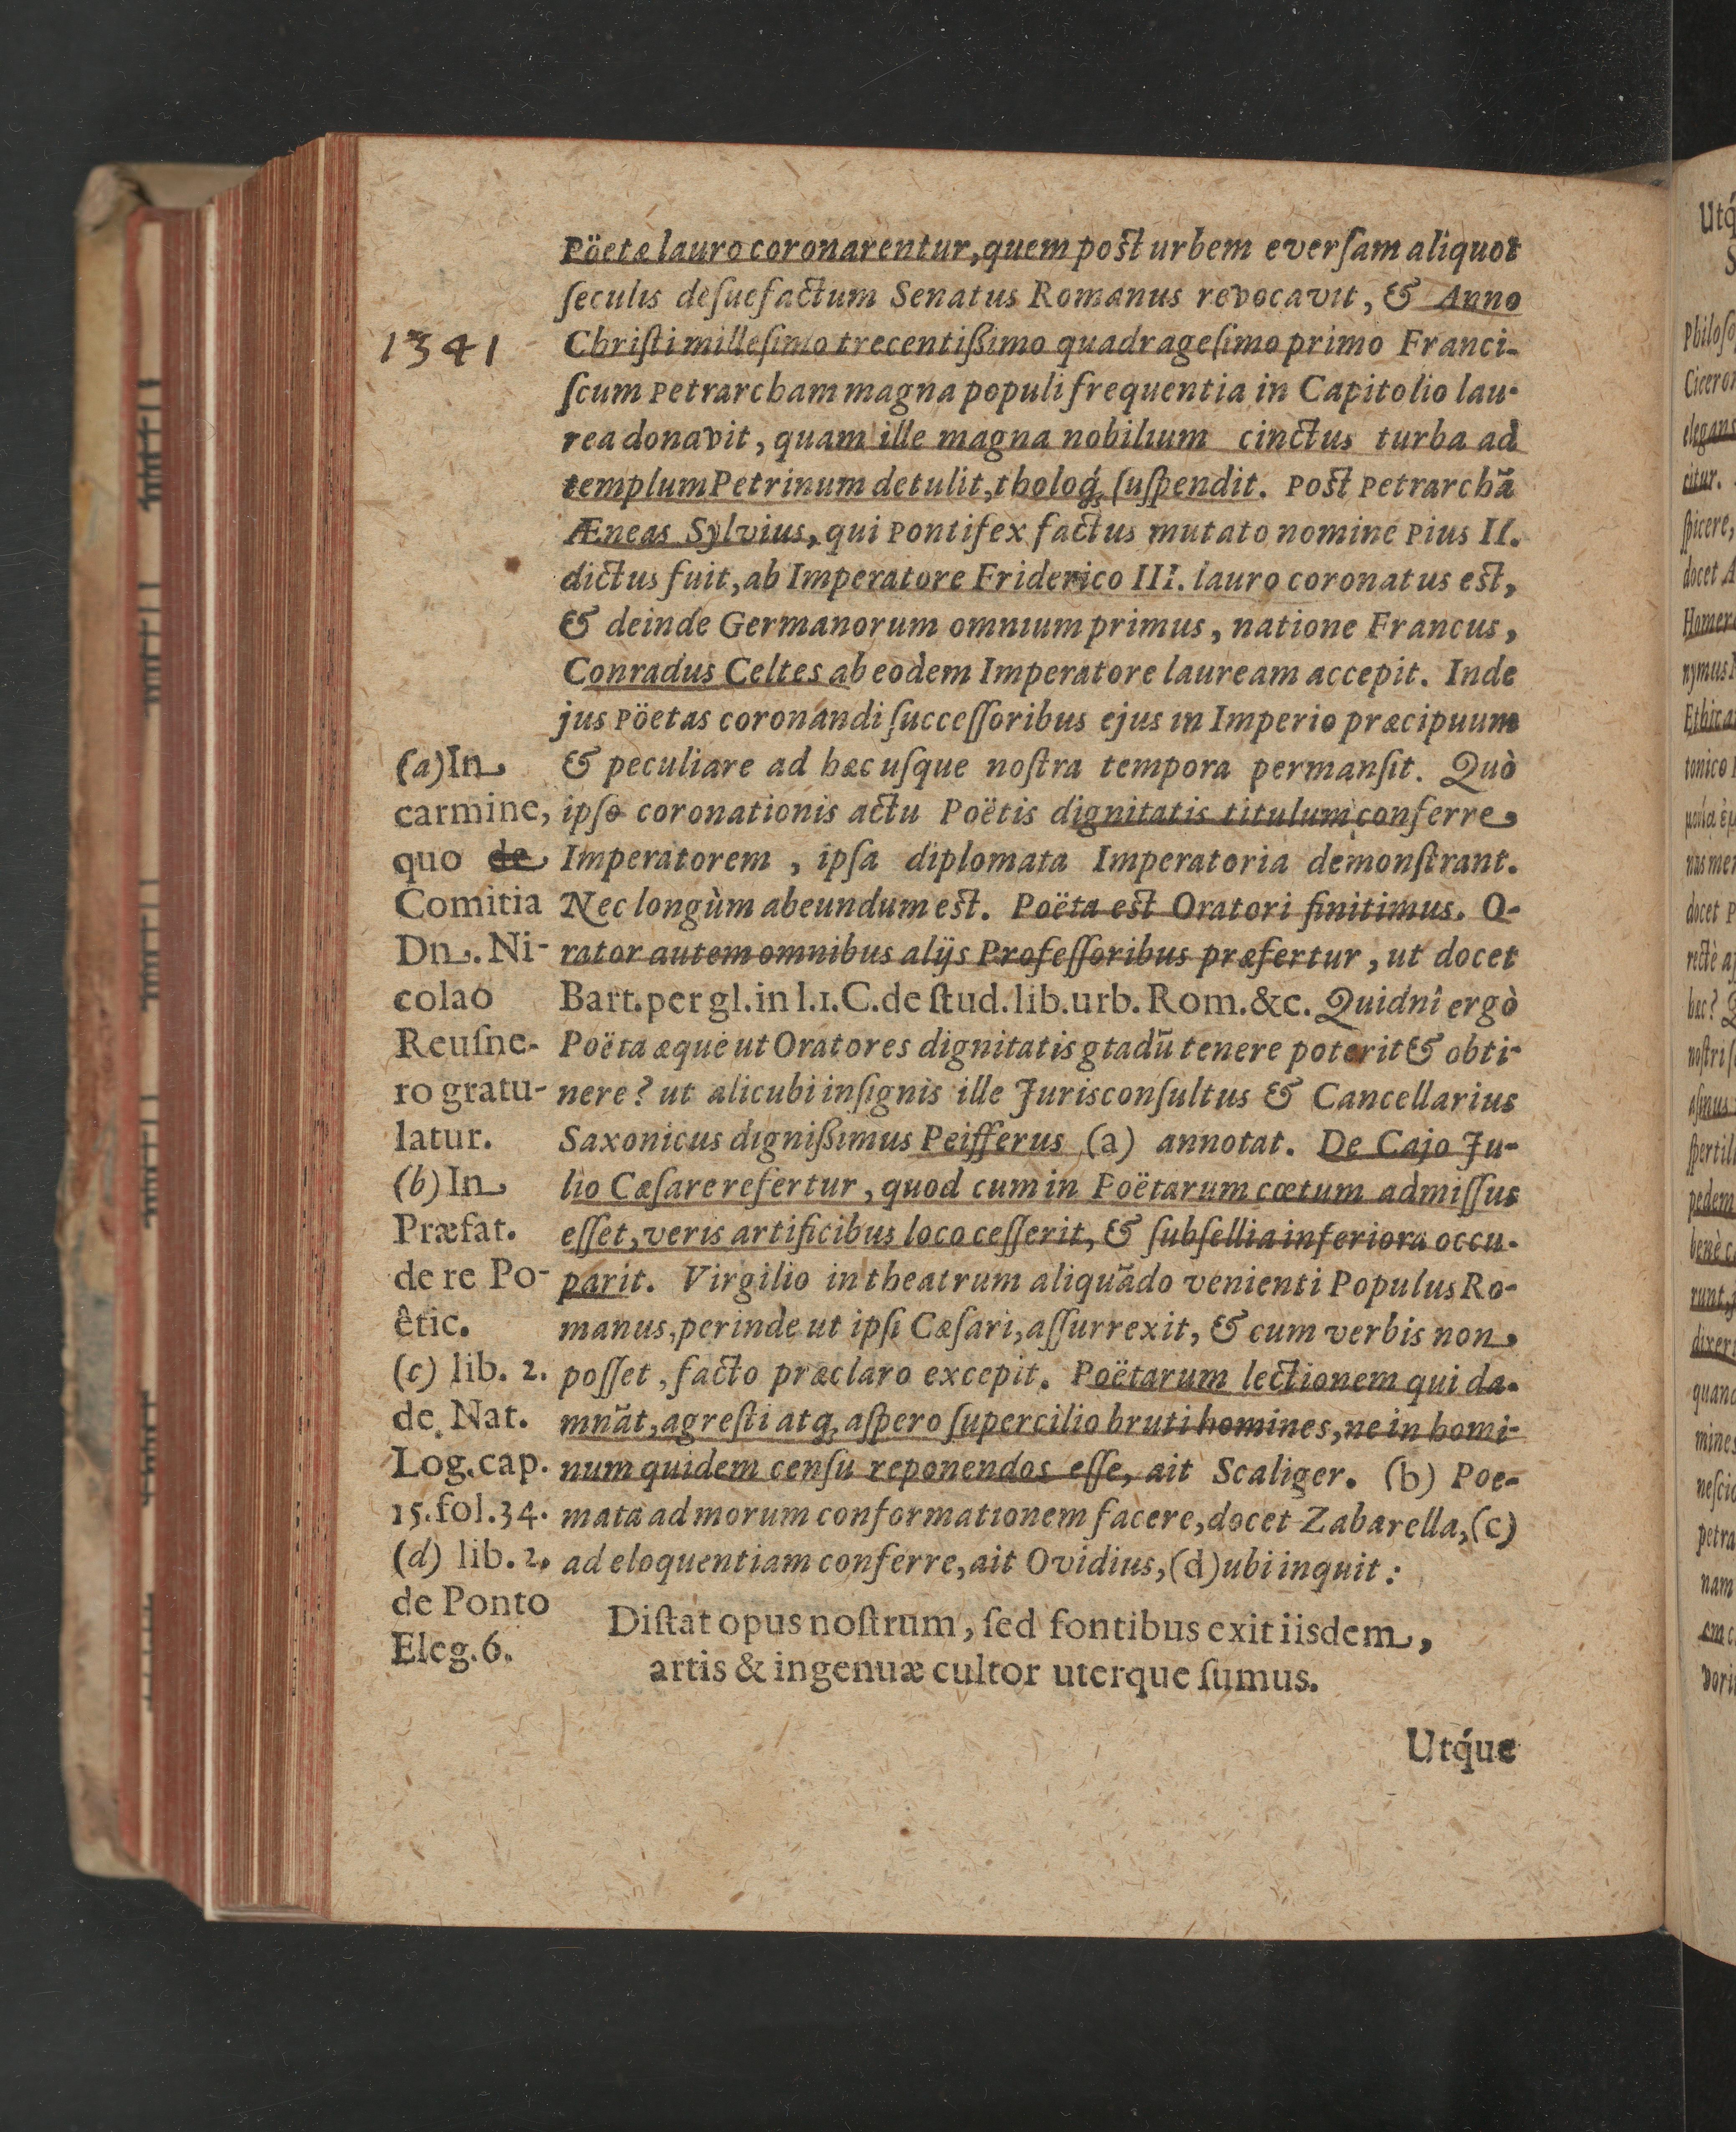 Pöetæ lauro coronarentur, quem post urbem everſam aliquot
ſeculis deſuefactum Senatus Romanus revocavit, & Anno
1341
Chriſti milleſimo trecentißimo quadrageſimo primo Franci-
ſcum Petrarcham magna populi frequentia in Capitolio lau-
rea donavit, quam ille magna nobilium cinctus turba ad
templum Petrinum detulit, tholoq́; ſuſpendit. Post Petrarchã
Æneas Sylvius, qui Pontifex factus mutato nomine Pius II.
dictus fuit, ab Imperatore Friderico III. lauro coronatus est,
& deinde Germanorum omnium primus, natione Francus,
Conradus Celtes ab eodem Imperatore lauream accepit. Inde
jus Pöetas coronandi ſucceſſoribus ejus in Imperio præcipuum
& peculiare ad hæc uſque noſtra tempora permanſit. Quò
ipſo coronationis actu Poëtis dignitatis titulum conferre
Imperatorem, ipſa diplomata Imperatoria demonſtrant.
Nec longùm abeundum est. Poëta est Oratori finitimus. O-
rator autem omnibus alijs Profeſſoribus præfertur, ut docet
Bart. per gl. in l. 1. C. de ſtud. lib. urb. Rom. &c. Quidnî ergò
Poëta æque ut Oratores dignitatis gtadũ tenere poterit & obti-
nere? ut alicubi inſignis ille Jurisconſultus & Cancellarius
Saxonicus dignißimus Peifferus (a) annotat. De Cajo Ju-
lio Cæſare refertur, quod cum in Poëtarum cœtum admiſſus
eſſet, veris artificibus loco ceſſerit, & ſubſellia inferiora occu-
parit. Virgilio in theatrum aliquãdo venienti Populus Ro-
manus, perinde ut ipſi Cæſari, aſſurrexit, & cum verbis non
poſſet, facto præclaro excepit. Poëtarum lectionem qui da-
mnãt, agreſti atq; aſpero ſupercilio bruti homines, ne in homi-
num quidem cenſu reponendos eſſe, ait Scaliger. (b) Poe-
mata ad morum conformationem facere, docet Zabarella, (c)
ad eloquentiam conferre, ait Ovidius, (d) ubi inquit:
Diſtat opus noſtrum, ſed fontibus exit iisdem,
artis & ingenuæ cultor uterque ſumus.
Utq́ue
(a) In
carmine,
quo de
Comitia
Dn. Ni-
colao
Reuſne-
ro gratu-
latur.
(b) In
Præfat.
de re Po-
êtic.
(c) lib. 2.
de Nat.
Log. cap.
15. fol. 34.
(d) lib. 2.
de Ponto
Eleg. 6.